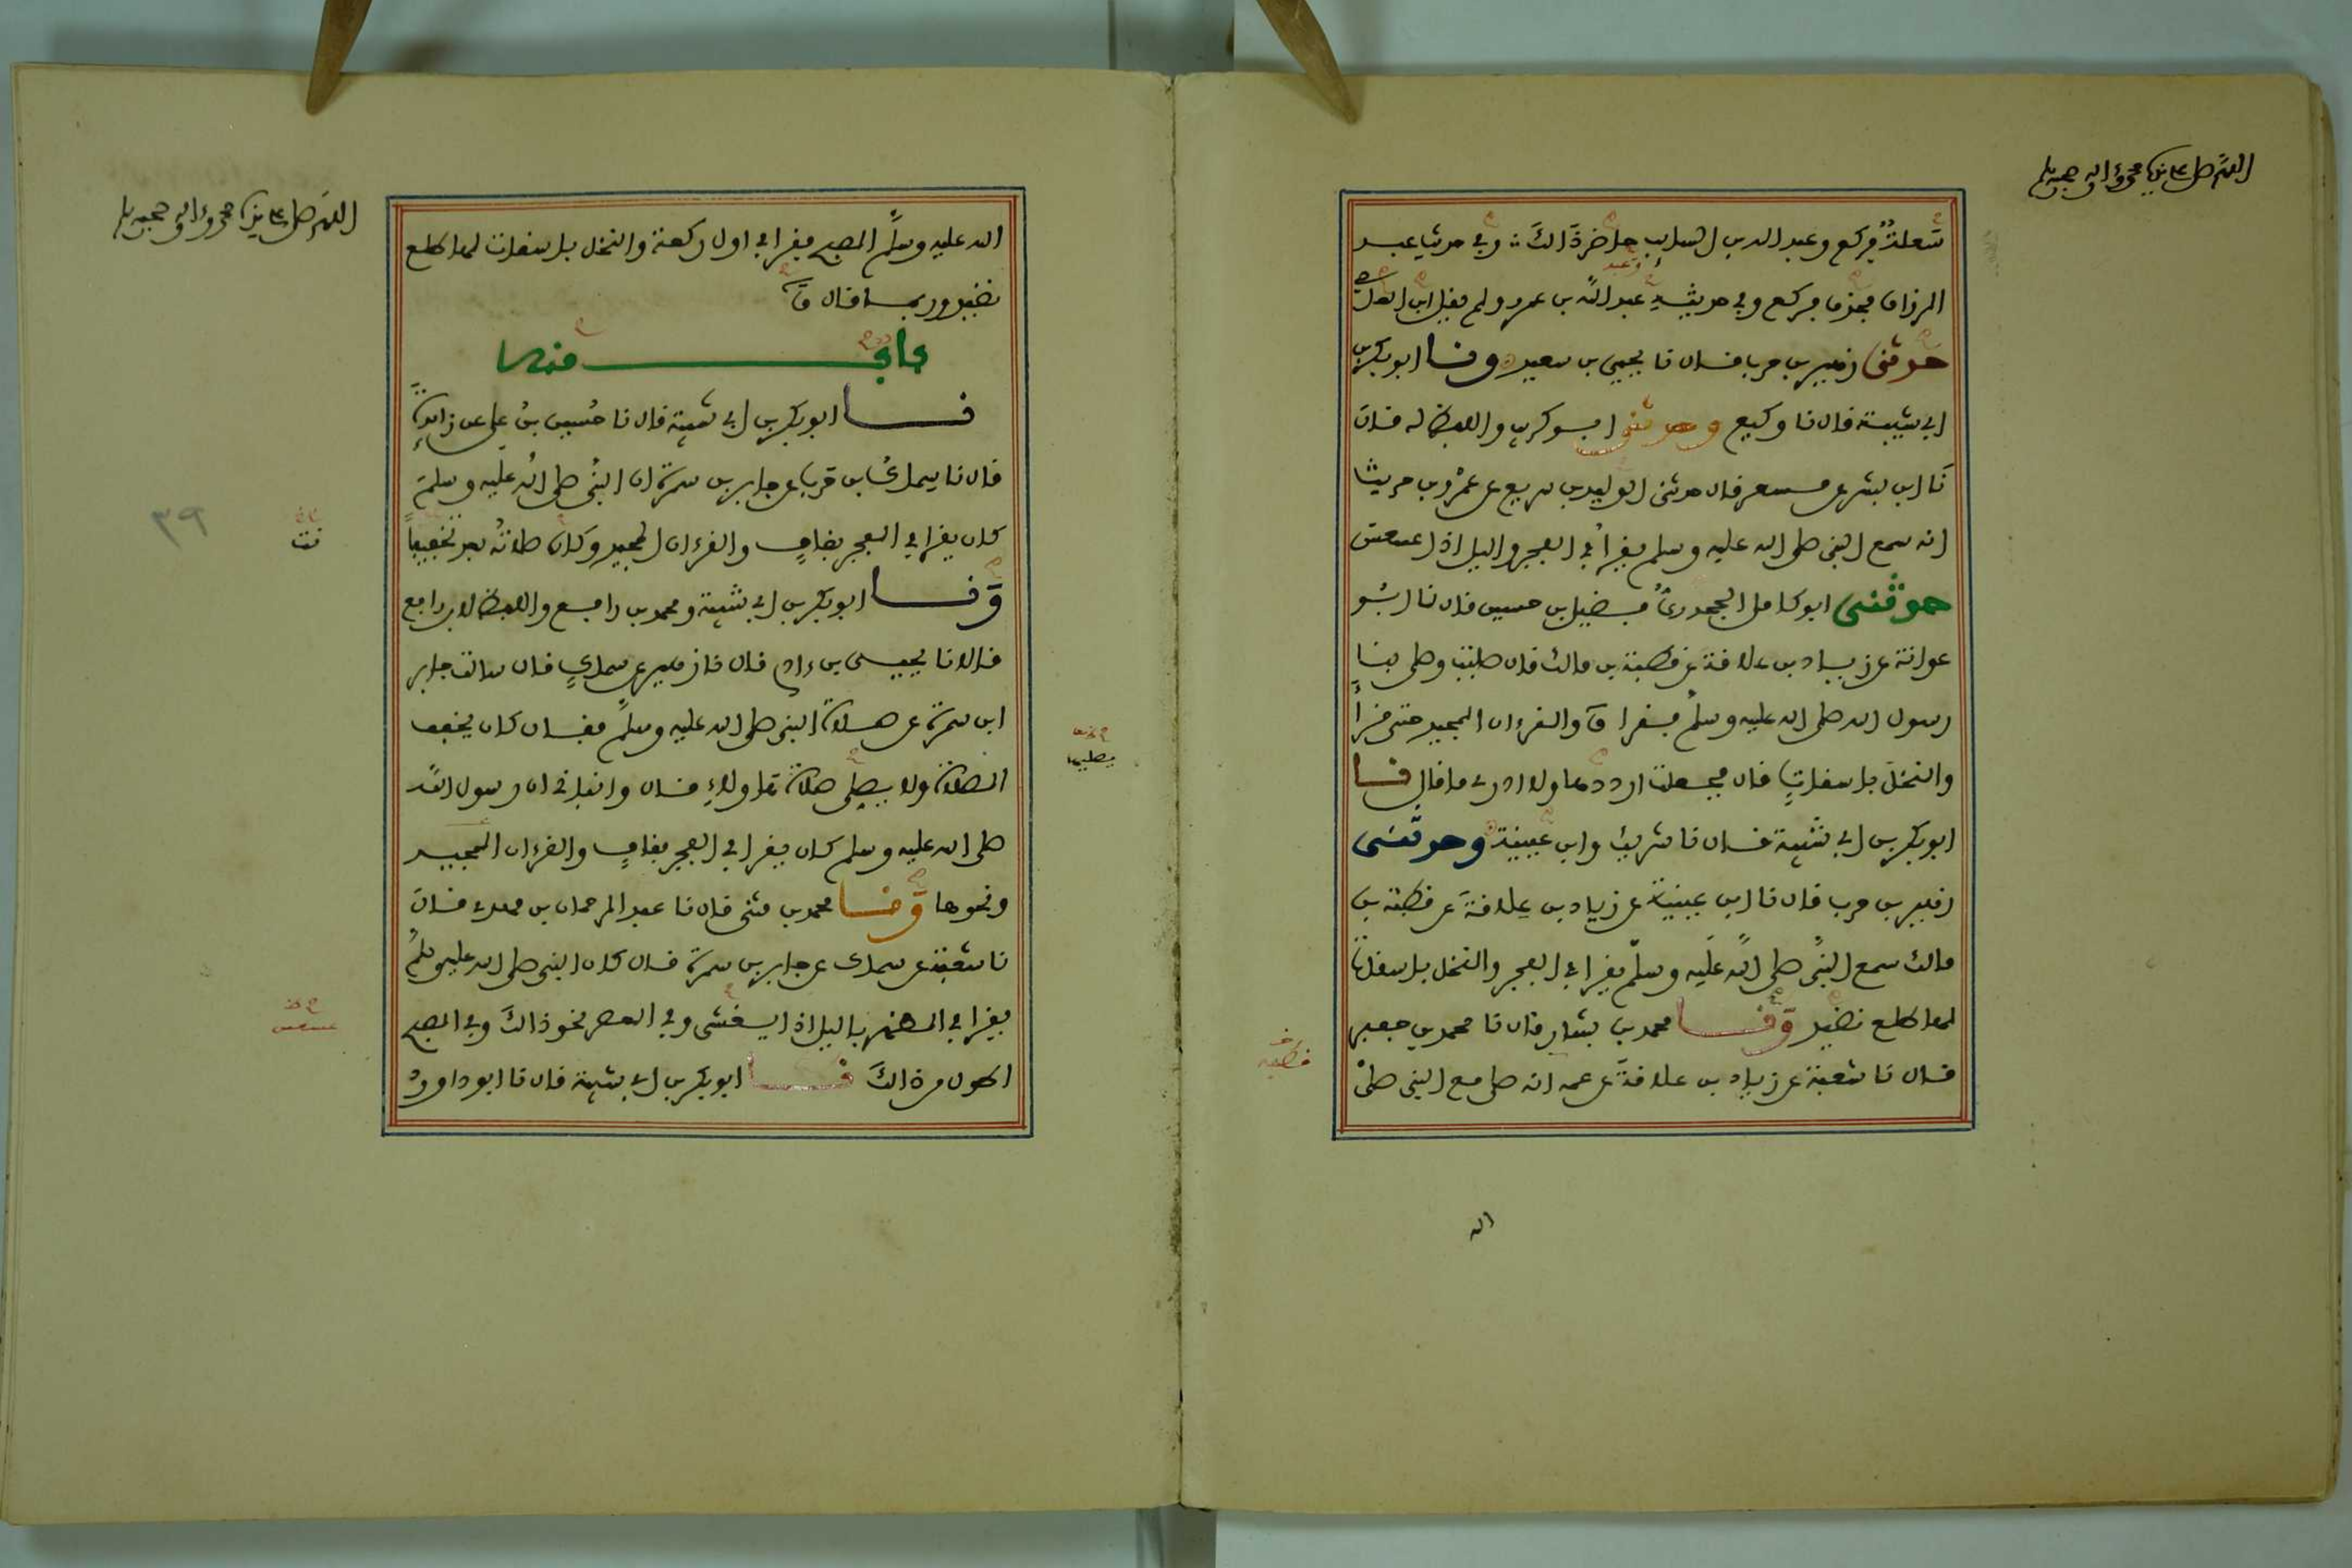 اللهم صل على نبيك محمد وءاله وصحبه وسلم
سَعلة فركع وعبد الله بن السايب حاضر ذالك وفي حديث عبد
وعبد
الرزاق فحذف فركع وفي حديثه عبد الله بن عمرو ولم يقل ابن العاصي
حدثني زهير بن حرب قال نا يحيى بن سعيد ونا ابو بكر بن
ابي شيبة قال نا وكيع وحدثني ابو كريب واللفظ له قال
نا ابن بشر عن مسعر قال حدثني الوليد بن سريع عن عمرو بن حريث
انه سمع النبي صلى الله عليه وسلم يقرأ في الفجر واليل اذا عسعس
حدثني ابو كامل الجحدري فضيل بن حسين قال نا ابو
عوانة عن زياد بن علاقة عن قطبة بن مالك قال صليت وصلى بنا
رسول الله صلى الله عليه وسلم فقرا ق والقرءان المجيد حتى قرأ
والنخل باسقات قال فجعلت ارددها ولا ادري ما قال نا
ابو بكر بن ابي شيبة قال نا شريك وابن عيينة وحدثني
زهير بن حرب قال نا ابن عيينة عن زياد بن علاقة عن قطبة بن
مالك سمع النبي صلى الله عليه وسلم يقرا في الفجر والنخل باسقات
لها طلع نضيد ونا محمد بن بشار قال نا محمد بن جعفر
قطبة
قال نا شعبة عن زياد بن علاقة عن عمه انه صلى مع النبي صلى
الله
اللهم صل على نبيك محمد وءاله وصحبه وسلم
الله عليه وسلم الصبح فقرا في اول ركعة والنخل باسقات لها طلع
نضيد وربما قال ق
باب منه
نا ابو بكر بن ابي شيبة قال نا حسين بن علي عن زايدة
قال نا سماك بن حرب عن جابر بن سمرة ان النبي صلى الله عليه وسلم
كان يقرا في الفجر بقاف والقرءان المجيد وكان صلاته بعد تخفيفا
نت
٣٩
ونا ابو بكر بن ابي شيبة ومحمد بن رافع واللفظ لابن رافع
قالا نا يحيى بن ءادم قال نا زهير عن سماك قال سالت جابر
ابن سمرة عن صلاة النبي صلى الله عليه وسلم فقال كان يخفف
يصليها
الصلاة ولا يصلي صلاة هاولاء قال وانبانى ان رسول الله
صلى الله عليه وسلم كان يقرا في الفجر بقاف والقرءان المجيد
ونحوها ونا محمد بن مثنى قال نا عبد الرحمان بن مهدي قال
نا شعبة عن سماك عن جابر بن سمرة قال كان النبي صلى الله عليه وسلم
يقرا في الظهر باليل اذا يغشى وفي العصر نحو ذالك وفي الصبح
عسعس
اطول من ذالك نا ابو بكر بن ابي شيبة قال نا ابو داوود